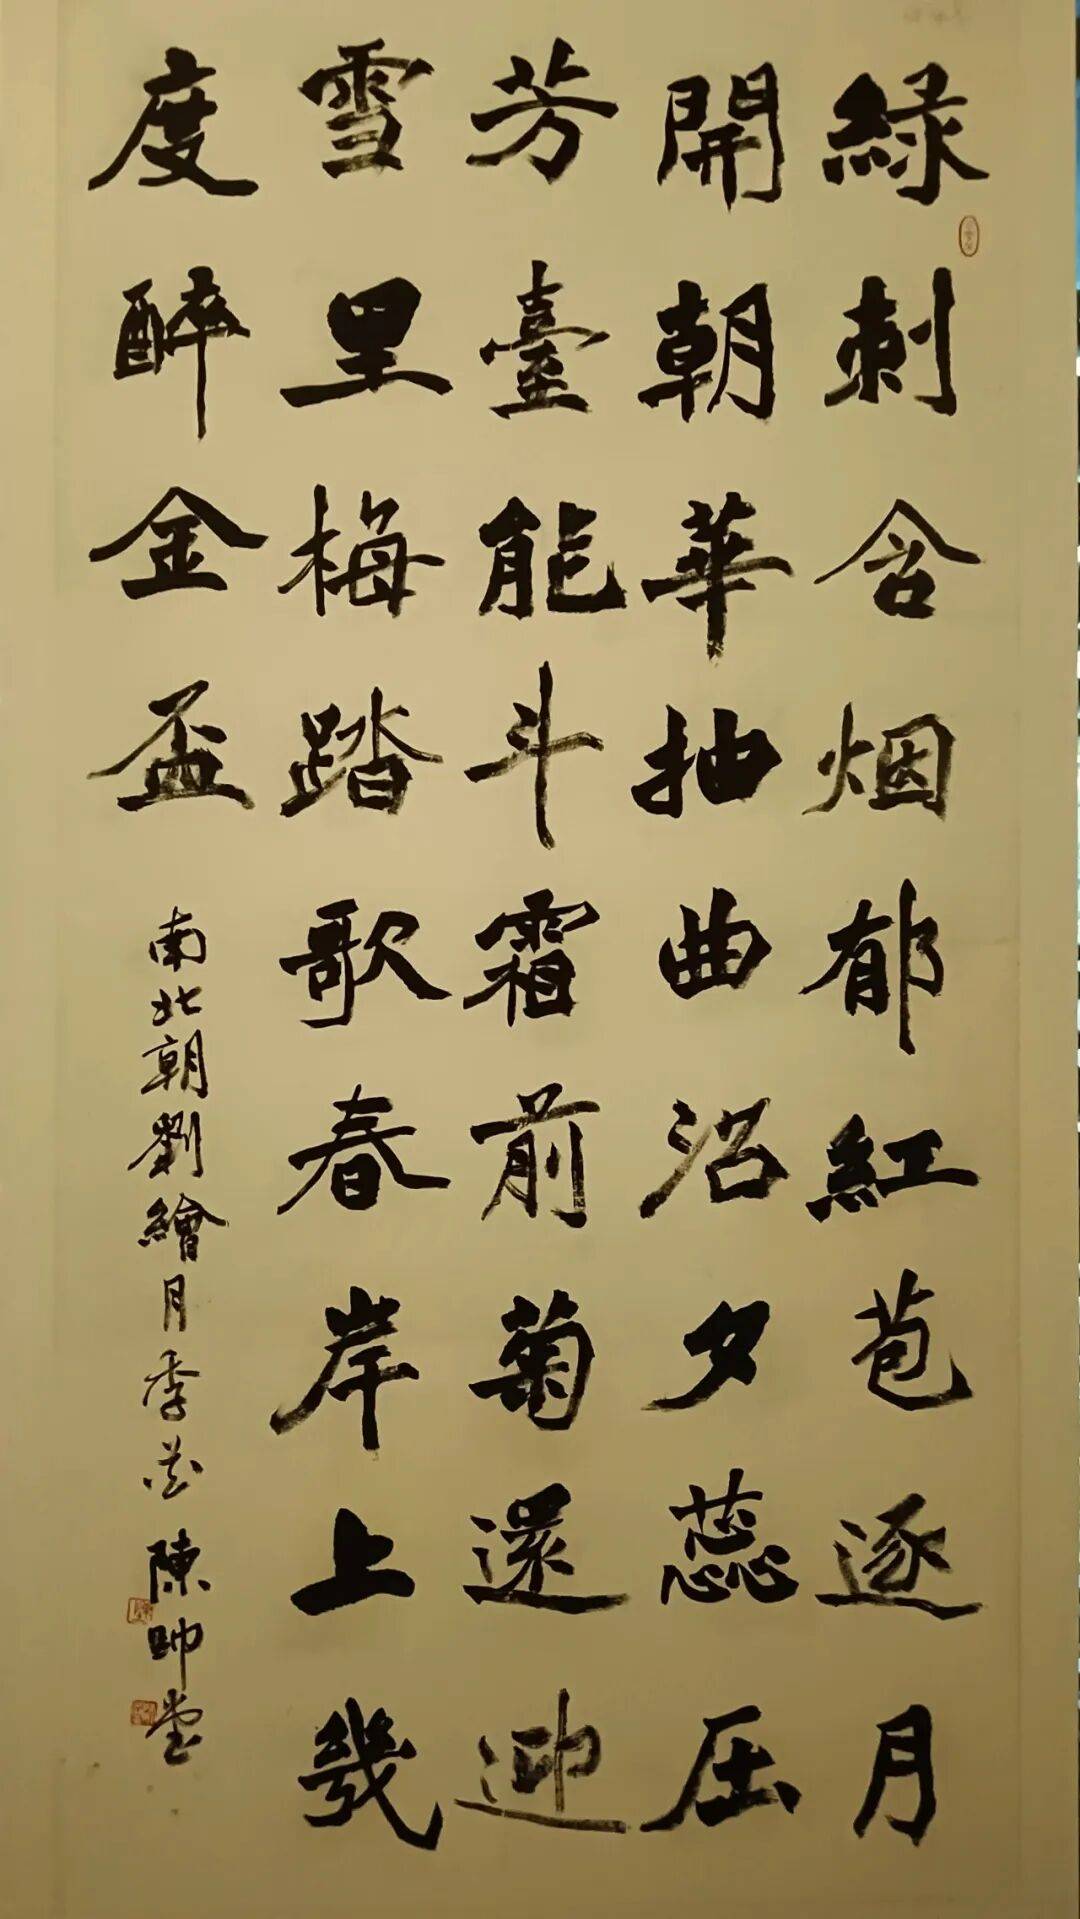 綠刺含烟郁紅苞逐月
開朝華抽曲沼夕蕊压
芳臺能斗霜前菊還迎
雪里梅踏歌春岸上幾
度醉金盃
南北朝劉繪月季花 陳帥堂